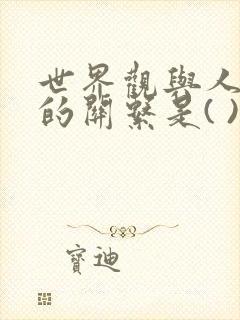 世界觀與人
的關繫是( )
寶迪